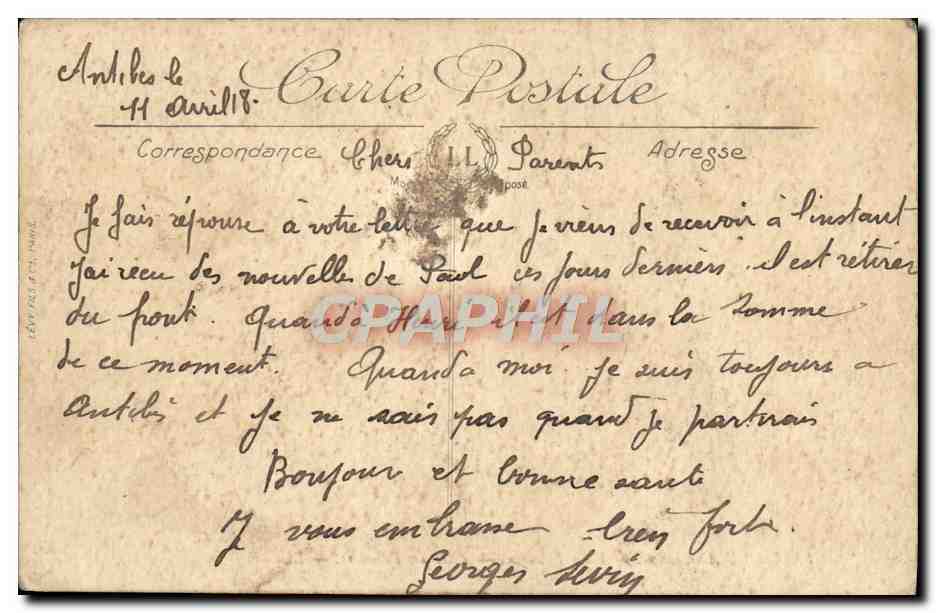 Antibes le
11 avril 18.
Carte Postale
Correspondance
Adresse
LL
Chers Parents
Je fais réponse à votre lettre que je viens de recevoir à l'instant
J'ai recu des nouvelles de Paul ces jours derniers il est rétirer
du front. Quand à Henri il est dans la Somme
de ce moment. Quand a moi je suis toujours a
Antibes et je ne sais pas quand je partirais
Bonjour et bonne sante
Je vous embrasse bien fort.
Georges
LÉVY FILS & Cie, PARIS
CPAPHIL